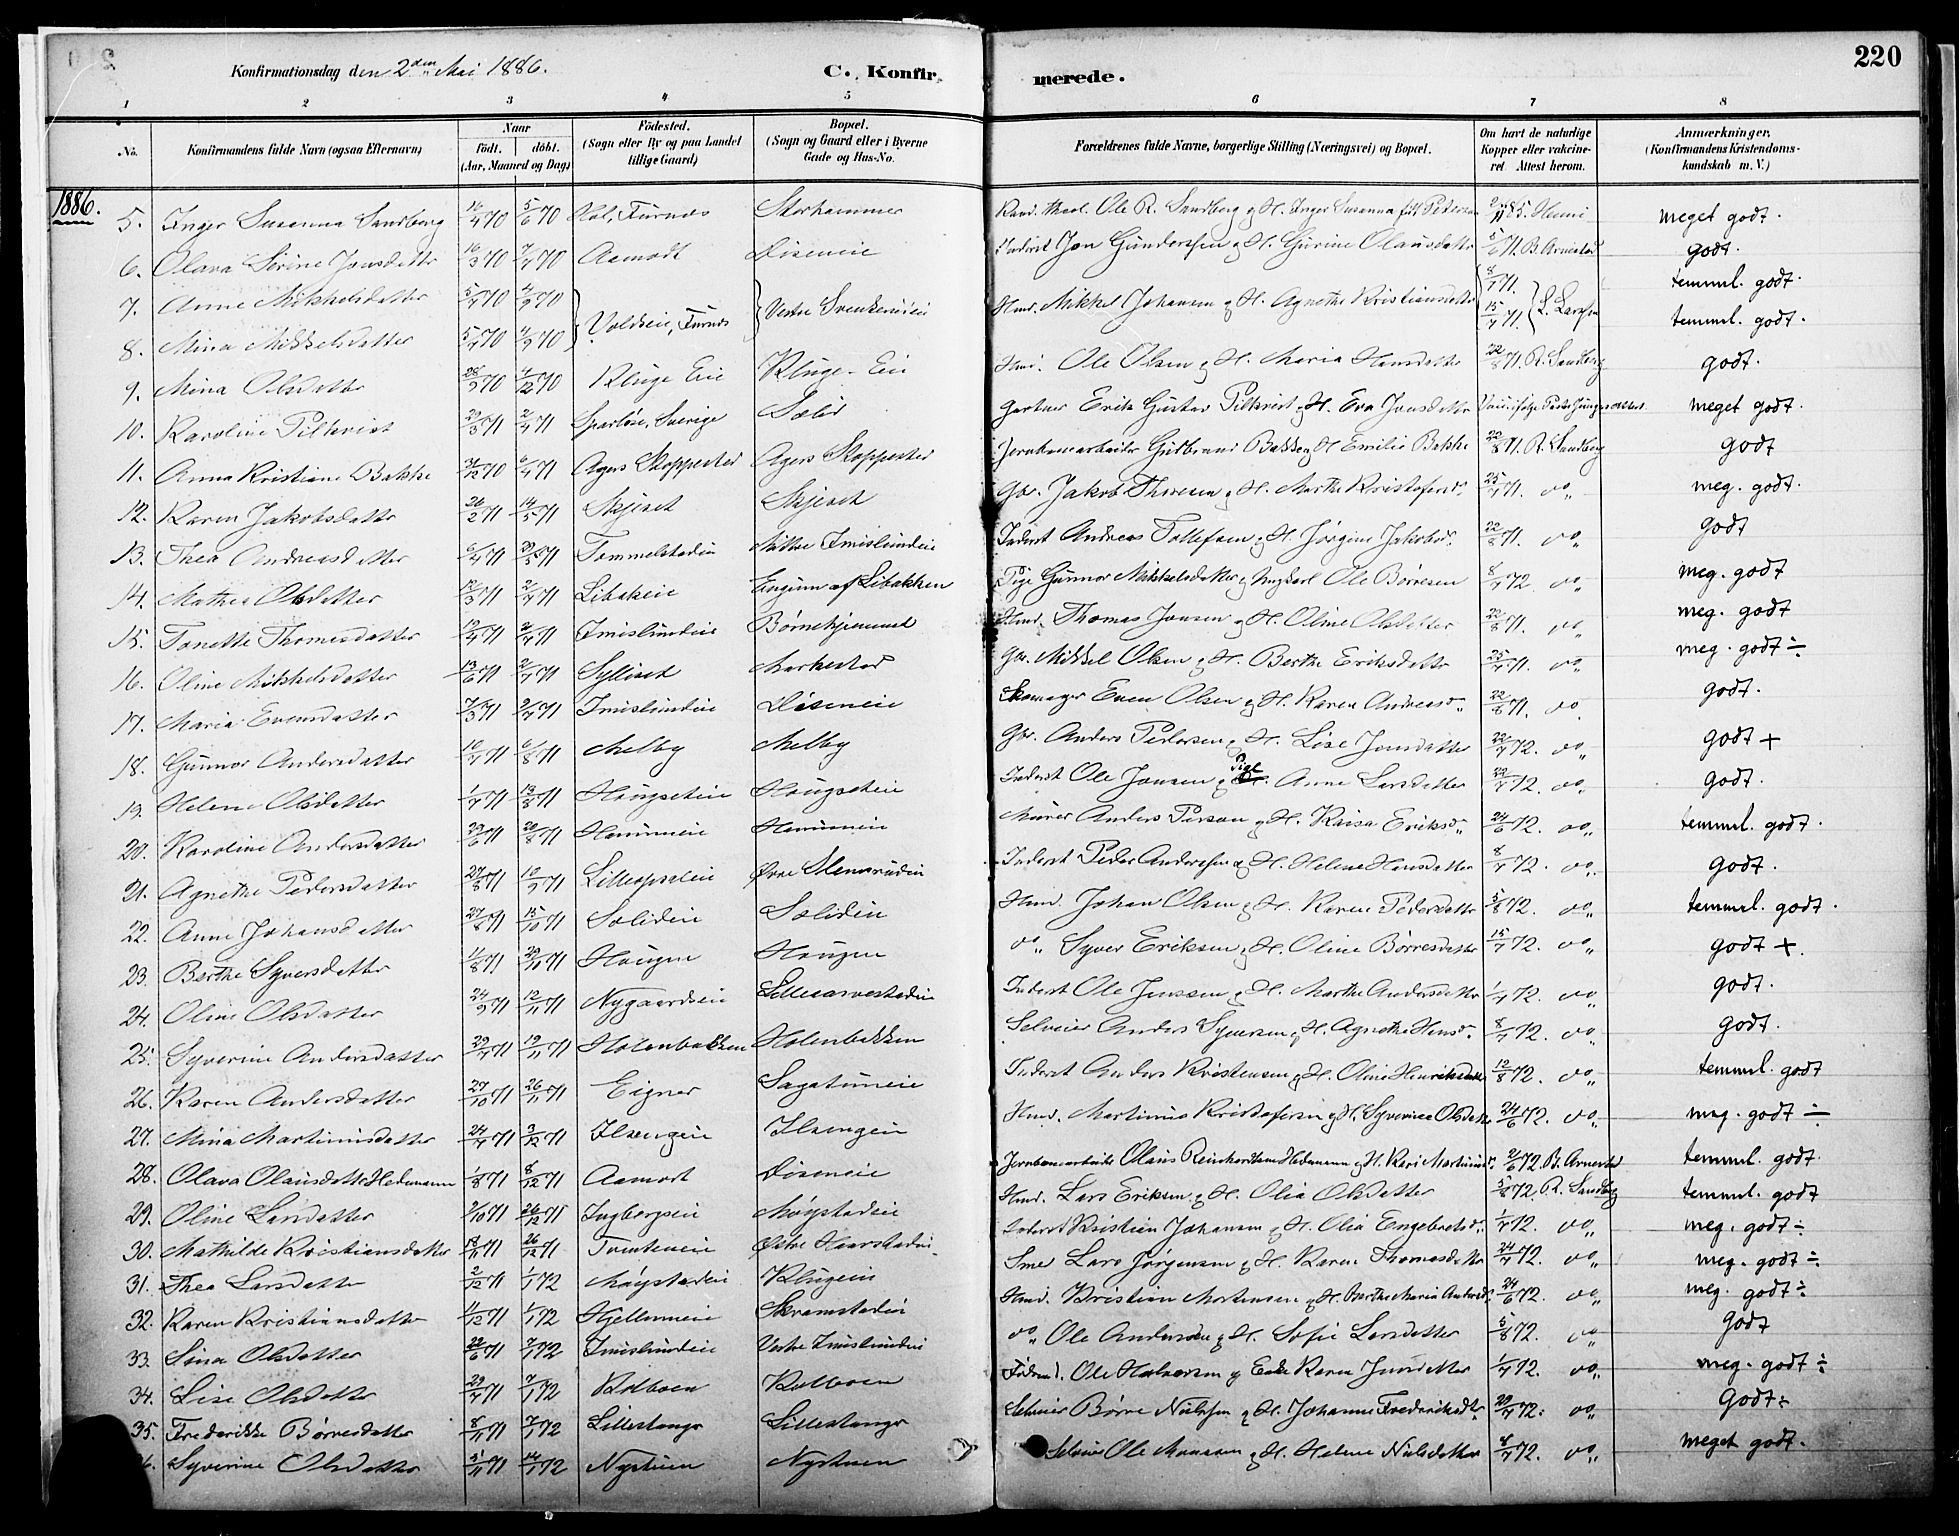 220
Konfirmationsdag den 2den Mai 1886. C. Konfirmerede.
1 2 3 4 5 6 7 8
No. Konfirmandens fulde Navn (ogsaa Efternavn) Naar født. døbt. (Aar, Maaned og Dag) Fødested. (Sogn eller By og paa Landet tillige Gaard) Bopæl. (Sogn og Gaard eller i Byerne Gade og Hus-No. Forældrenes fulde Navne, borgerlige Stilling (Næringsvei) og Bopæl. Om havt de naturlige Kopper eller vakcineret Attest herom. Anmærkninger. (Konfirmandens Kristendomskundskab m. V.)
1886.
5. Inger Susanna Sandberg 16/4 70 5/6 70 Furnes Storhammer Kand. theol. Ole R. Sandberg og H. Inger Susanna meget godt.
6. Olava Serine Jonsdatter 16/3 70 7/4 70 Aamodt Diseneie Inderst Jon Gundersen og H. Gurine Olausdatter 5/6 71. B. Arnestad godt.
7. Anne Mikkelsdatter 5/4 70 4/9 70 Voldseie, Furnes Vestre Svenkerudeie Hmd. Mikkel Johansen og H. Agnethe Kristiansdatter 8/7 71. L. Larsen temml. godt.
8. Mina Mikkelsdatter 5/4 70 4/9 70 15/7 71. temml. godt.
9. Mina Olsdatter 28/9 70 4/12 70 Kluge Eie Kluge-Eie Hmd. Ole Olsen og H. Maria Hansdatter 22/8 71. R. Sandberg godt.
10. Karoline Pilkvist 29/3 71 2/4 71 Sparløse, Sverige Sælid Gartner Erik Gustav Pilkvist og H. Eva Jonsdatter meget godt.
11. Anna Kristiane Bakke 31/12 70 6/4 71 Agers Skoppestad Agers Skoppestad Jernbanearbeider Gulbrand Bakke og H. Emilie Bakke 22/8 71. R. Sandberg godt
12. Karen Jakobsdatter 26/2 71 14/5 71 Skjeset Skjeset Gbr. Jakob Thoresen og H. Marthe Kristofersd. 25/7 71. do" meg. godt.
13. Thea Andreasdatter 6/4 71 29/5 71 Tommelstadeie Midtre Imislundeie Inderst Andreas Tollefsen og H. Jørgine Jakobsd. 22/8 71. do" godt
14. Mathea Olsdatter 12/3 71 2/7 71 Libakeie Engum af Libakken Pige Gunnor Mikkelsdatter og Ungkarl Ole Børresen 8/7 72. do" meg. godt
15. Tonette Thomesdatter 19/4 71 2/7 71 Imislundeie Børnehjemmet Hmd. Thomas Jonsen og H. Oline Olsdatter 22/8 71. do" meg. godt
16. Oline Mikkelsdatter 13/6 71 2/7 71 Sylliset Markestad Gbr. Mikkel Olsen og H. Berthe Eriksdatter 25/7 71. do" meg. godt ÷
17. Maria Evensdatter 7/3 71 2/7 71 Imislundeie Diseneie Skomager Even Olsen og H. Karen Andreasd. 22/8 71. do. godt.
18. Gunnor Andersdatter 10/7 71 6/8 71 Melby Melby Gbr. Anders Pedersen og H. Lise Jonsdatter 22/7 72. do" godt +
19. Helene Olsdatter 1/7 71 13/8 71 Hougseteie Hougseteie Inderst Ole Jonsen og Pige Anne Larsdatter 22/7 72. do" godt.
20. Karoline Andersdatter 29/6 71 20/8 71 Horumeie Horumeie Murer Anders Person og H. Kaisa Eriksd. 24/6 72. do" temml. godt.
21. Agnethe Pedersdatter 27/8 71 10/9 71 Lilleopsaleie Øvre Stensrudeie Inderst Peder Andersen og H. Helene Hansdatter 8/7 72. do" godt.
22. Anne Johansdatter 27/8 71 15/10 71 Sælideie Sælideie Hmd. Johan Olsen og H. Karen Pedersdatter 5/8 72. do" temml. godt.
23. Berthe Syversdatter 1/8 71 29/10 71 Hougen Hougen do" Syver Eriksen og H. Oline Børresdatter 15/7 72. do" godt +.
24. Oline Olsdatter 24/9 71 12/11 71 Nygaardseie Inderst Ole Jenssen og H. Marthe Andersdatter 1/7 72. do" godt.
25. Syverine Andersdatter 29/7 71 19/11 71 Holenbakken Holenbakken Selveier Anders Syversen og H. Agnethe Hansd. 8/7 72. do" godt.
26. Karen Andersdatter 27/10 71 26/11 71 Eigner Sagatuneie Inderst Anders Kristensen og H. Oline Henriksdatter 12/8 72. do" temml. godt
27. Mina Martinusdatter 24/7 71 3/12 71 Ilsengeie Ilsengeie Hmd. Martinus Kristofersen og H. Syverine Olsdatter 24/6 72. do" meg. godt ÷
28. Olava Olausdatter Hedemann 1/8 71 8/12 71 Aamodt Diseneie Jernbanearbeider Olaus Reinhardtsen Hedemann og H. Kari Martinusd. 2/6 72. B. Arnestad temml. godt.
29. Oline Larsdatter 2/10 71 26/12 71 Ingbergseie Møystadeie Hmd. Lars Eriksen og H. Olia Olsdatter 5/8 72. R. Sandberg temml. godt
30. Mathilde Kristiansdatter 18/11 71 26/12 71 Tomteneie Østre Haarstadeie Inderst Kristian Johansen og H. Olia Engebretsd. 1/7 72. do" meg. godt ÷
31. Thea Larsdatter 2/12 71 1/1 72 Møystadeie Klugeeie Sme Lars Jørgensen og H. Karen Thomasdatter 24/7 72. do" meg. godt ÷
32. Karen Kristiansdatter 11/12 71 1/1 72 Hjellumeie Skramstadeie Hmd. Kristian Mortensen og H. Berthe Maria Andersd. 24/6 72. do" meg. godt ÷
33. Sina Olsdatter 22/6 71 7/1 72 Imislundeie Vestre Imislundeie do" Ole Andersen og H. Sofie Larsdatter 5/8 72. do" Godt
34. Lise Olsdatter 29/7 71 7/1 72 Rolboen Rolboen Ole Halvorsen og Enke Karen Jonsdatter 1/7 72. do" meg. godt ÷
35. Frederikke Børresdatter 8/11 71 7/1 72 Lillestange Lillestange Selveier Børre Nielsen og H. Johanne Frederiksdt. 29/7 72. do" Godt ÷
6. Syverine Olsdatter 5/11 71 14/1 72 Nystuen Nystuen Selveier Ole Monsen og H. Helene Nielsdatter 8/7 72. do" meget godt.